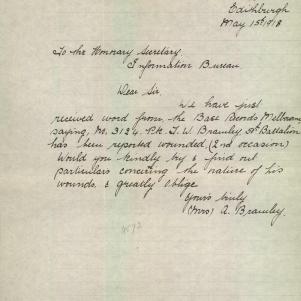 Edithburgh
May 15th 1918
To the Honorary Secretary
Information Bureau
Dear Sir,
We have just
received word from the Base Records Melbourne
saying, No. 3124 Pte. T. W. Bramley Battalion
has been reported wounded, (2nd occasion)
Would you kindly try & find out
particulars concering the nature of his
wounds, & greatly oblige
Yours truly
(Mrs) A. Bramley.